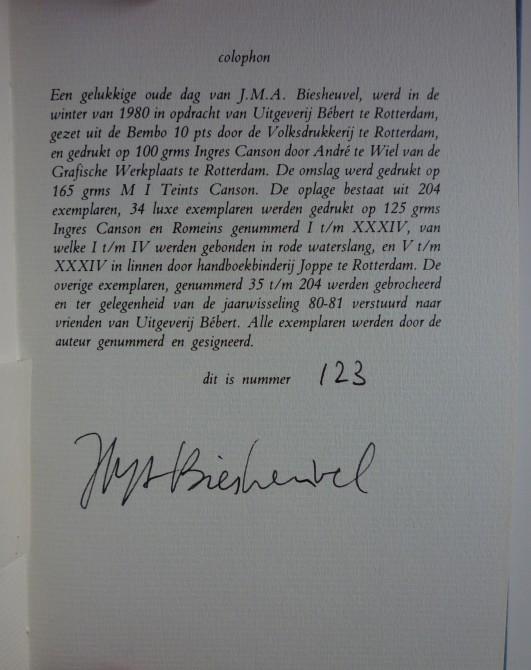 colophon
Een gelukkige oude dag van J.M.A. Biesheuvel, werd in de
winter van 1980 in opdracht van Uitgeverij Bébert te Rotterdam,
gezet uit de Bembo 10 pts door de Volksdrukkerij te Rotterdam,
en gedrukt op 100 grms Ingres Canson door André te Wiel van de
Grafische Werkplaats te Rotterdam. De omslag werd gedrukt op
165 grms M I Teints Canson. De oplage bestaat uit 204
exemplaren, 34 luxe exemplaren werden gedrukt op 125 grms
Ingres Canson en Romeins genummerd I t/m XXXIV, van
welke I t/m IV werden gebonden in rode waterslang, en V t/m
XXXIV in linnen door handboekbinderij Joppe te Rotterdam. De
overige exemplaren, genummerd 35 t/m 204 werden gebrocheerd
en ter gelegenheid van de jaarwisseling 80-81 verstuurd naar
vrienden van Uitgeverij Bébert. Alle exemplaren werden door de
auteur genummerd en gesigneerd.
dit is nummer 123
Biesheuvel